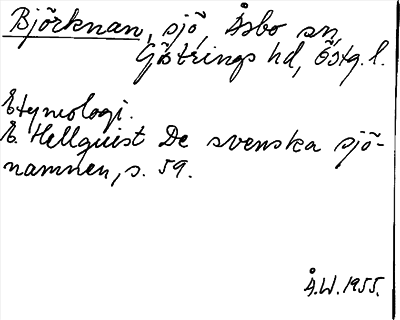 Björknan, sjö, Åsbo sn,
Göstrings hd, Östg. l.
Etymologi.
E. Hellquist De svenska sjö-
namnen, s. 59.
Å.W. 1955.